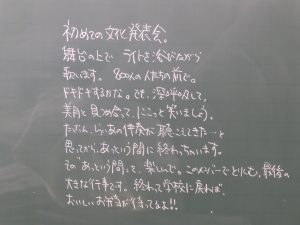 初めての文化発表会。
舞台の上で ライトを浴びながら
歌います。 800人の人たちの前で。
ドキドキするかな。でも、深呼吸して、
美月と見つめ合って、にこっと笑いましょう。
たぶん、いい音の伴奏が聴こえてきた…と
思ってから、あっという間に終わっちゃいます。
その“あっという間”って、楽しいで。このメンバーでとりくむ、最後の
大きな行事です。終わって学校に戻れば、
おいしいお弁当が待ってるよ!!